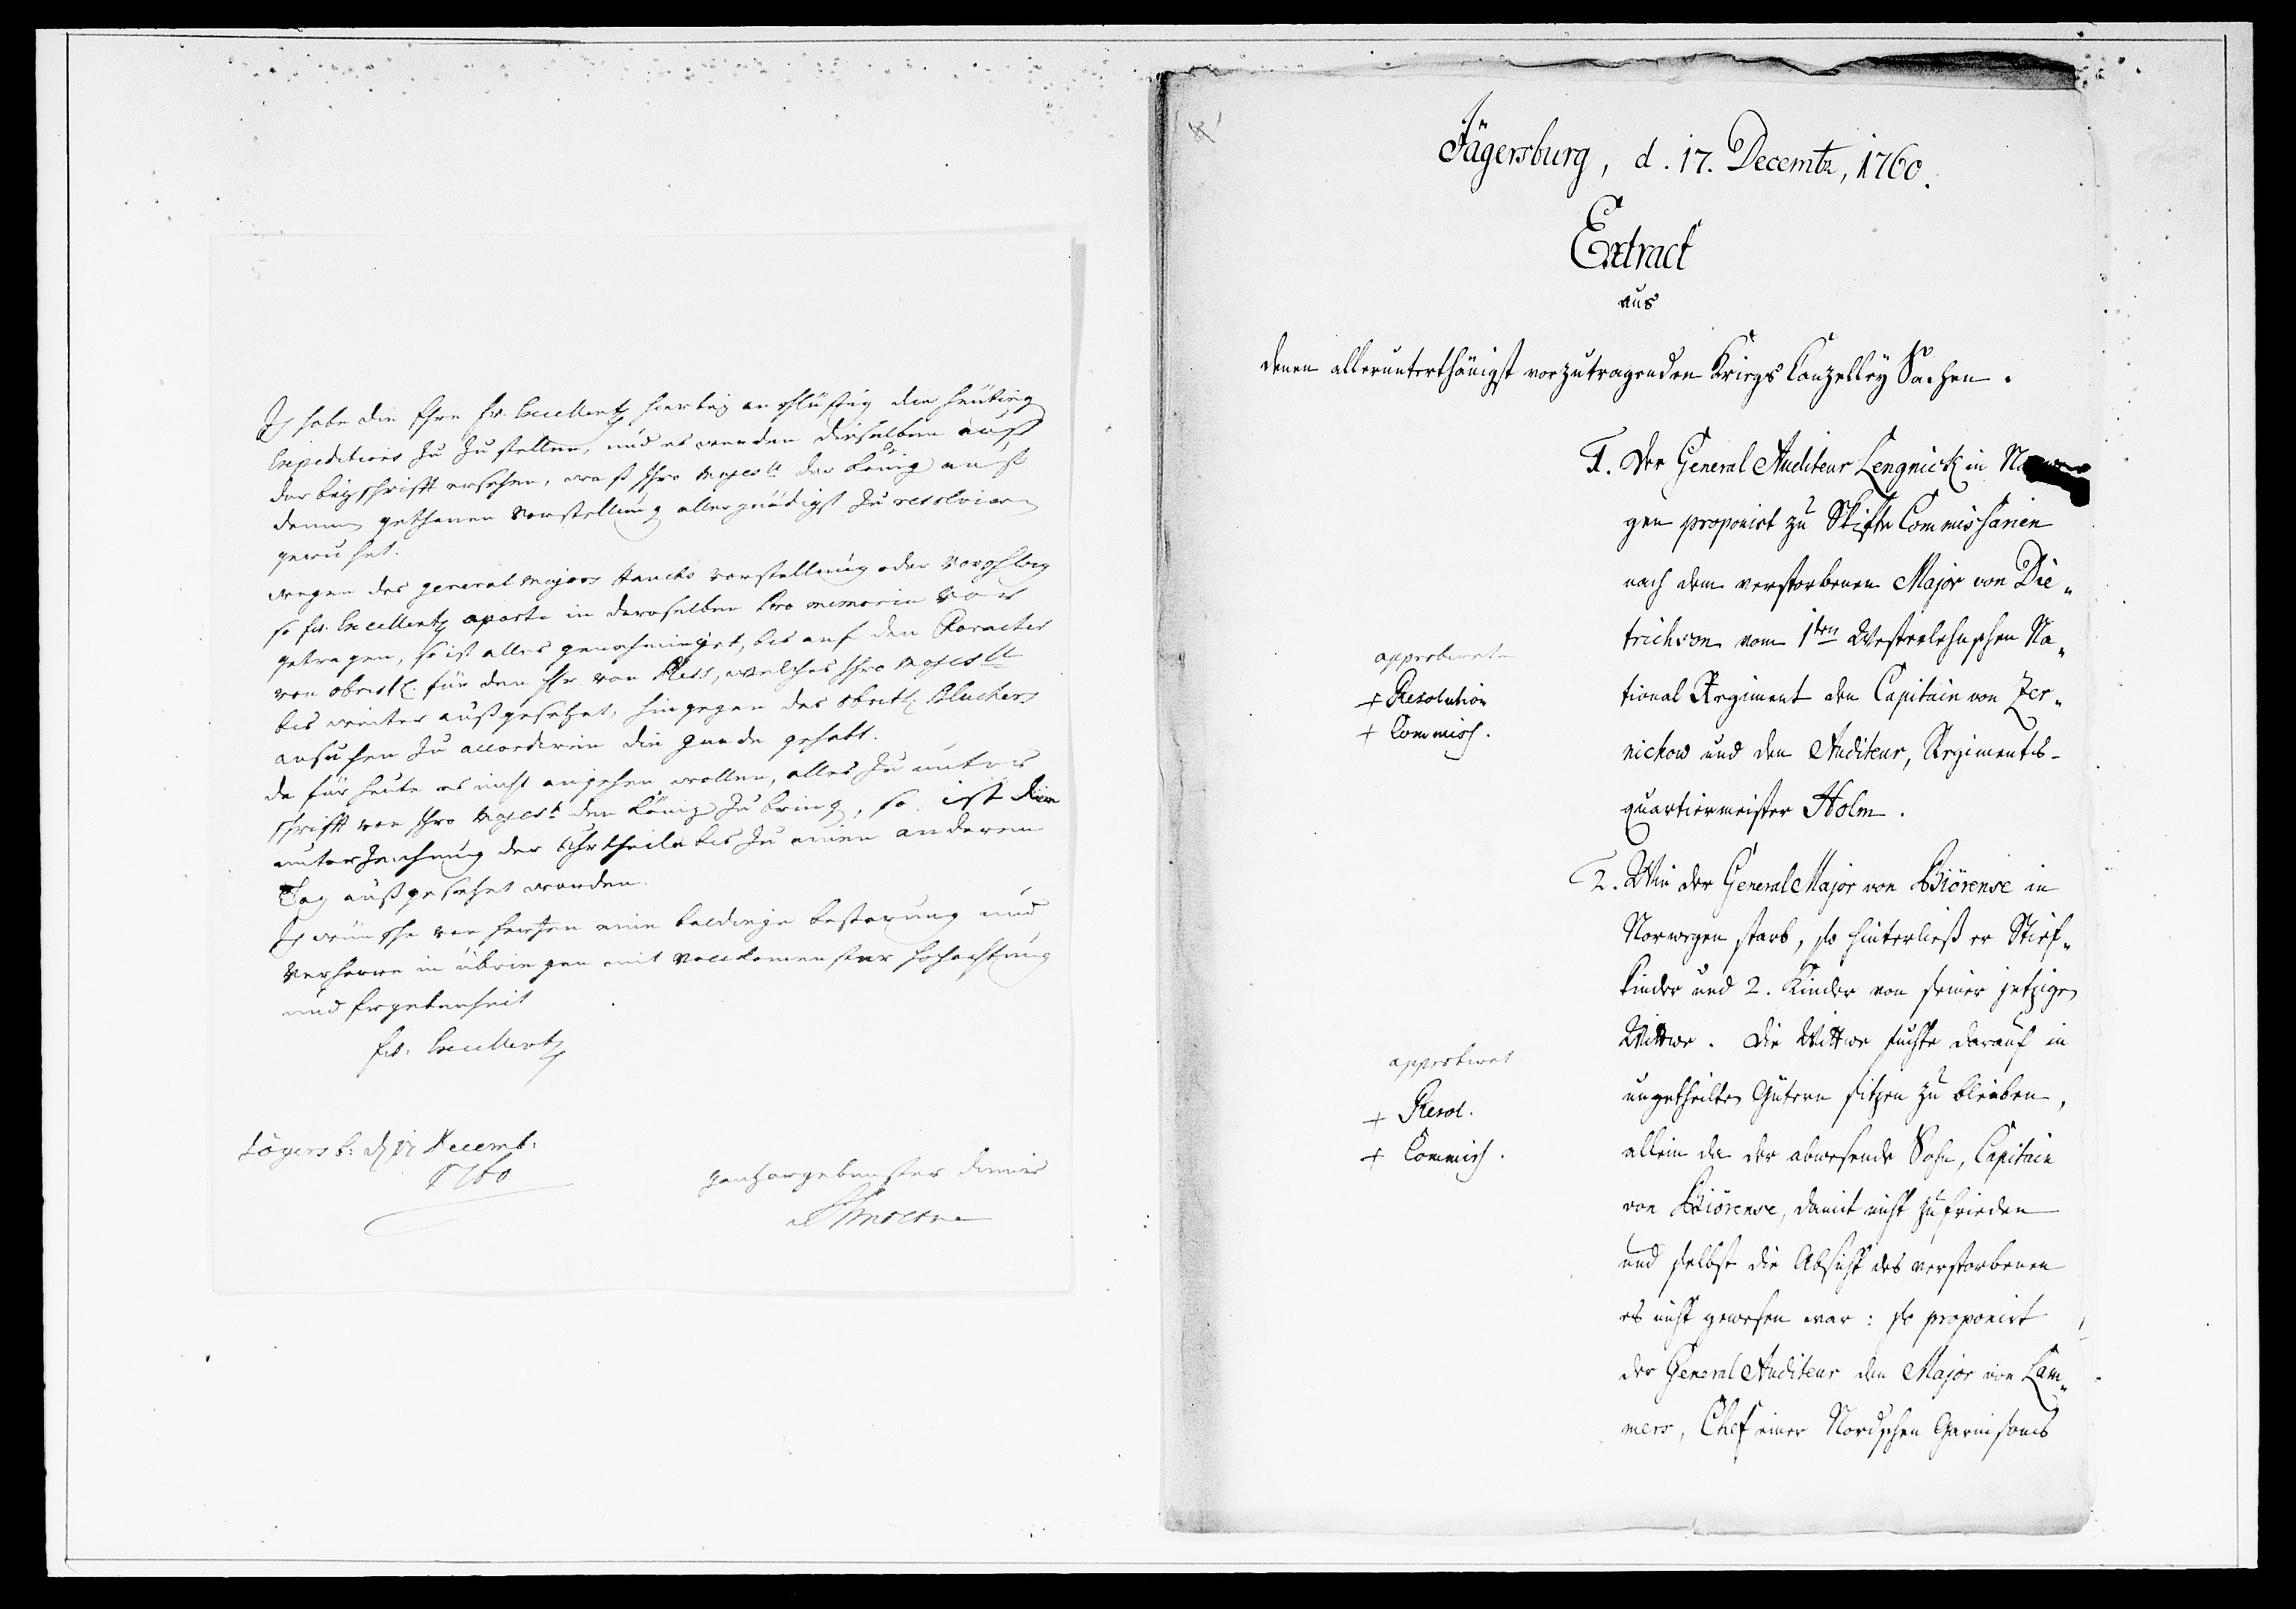 Ich habe die Ehre Ew. Excellentz hierbey anschlüssig die heutige
Expeditions zu zu stellen, und es werden dieselben auß
der beyschrifft ersehen, waß Ihro Mayestt der König auf
denen gethanen Vorstellung allergnädigst zu resolviren
geruhet.
wegen des general Majors Haucks vorstellung oder Vorschlag
so Ew. Excellentz aparte in deroselben Pro memoria vor
getragen, so ist alles genehmiget, bis auf den Caracter
von obristl. für den Hr von Pless, welches Ihro Mayestt
bis weiter außgesetzet, hingegen des obristl. Bluchers
ansuchen zu accordiren die gnade gehabt.
da für heute es nicht angehen wollen, alles zu unter
schrifft von Ihro Mayestt den König zu bring, so ist die
unterzeichnung der Uhrtheile bis zu einen anderen
Tag außgesetzet worden.
Ich wünsche von Hertzen eine baldige besserung und
verharre in übrigen mit vollkomenster hochachtung
und Ergebenheit
Ew. Excellentz
Jägersb: d 17 Decemb:
1760
gantz ergebenster diener
AGMoltke
Jägersburg, d. 17. Decembr, 1760.
Extract
aus
denen allerunterthänigst vorzutragenden Kriegs Canzelley Sachen.
1. Der General Auditeur Lengnick in
gen proponirt zu Skifte Commissarien
nach dem verstorbenen Major von Die-
trichson vom 1ten Westerlehnschen Na-
tional Regiment den Capitain von Zer-
nichow und den Auditeur, Regiments-
quartiermeister Holm.
approbiret
+ Resolution
+ Commiss.
2. Wie der General Major von Biörense in
Norwegen starb, so hinterließ er Stief-
kinder und 2. Kinder von seiner jetzigen
Wittwe. Die Wittwe suchte darauf in
ungetheilten Gütern sitzen zu bleiben,
allein da der abwesende Sohn, Capitain
von Biörense, damit nicht zufrieden
und selbst die Absicht des verstorbenen
es nicht gewesen war: so proponirt
der General Auditeur den Major von Lam-
mers, Chef einer Nordschen Garnisons
approbiret
+ Resol.
+ Commiss.